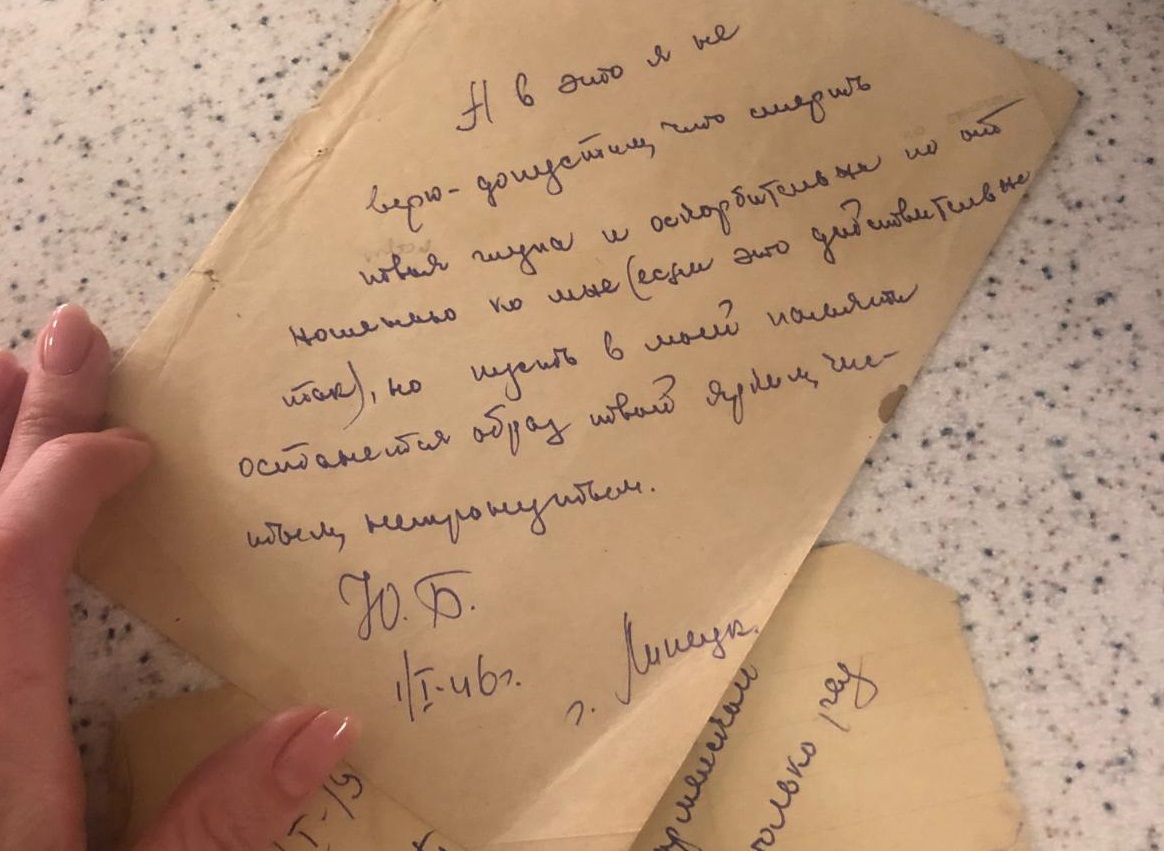 Я в это я не
верю - допустим, что смерть
твоя глупа и оскорбительна по от
ношению ко мне (если это действительно
так), но пусть в моей памяти
останется образ твой ярким, чис-
тым, нетронутым.
Ю. Б.
1/I-46г.
г. Липецк.
только раз